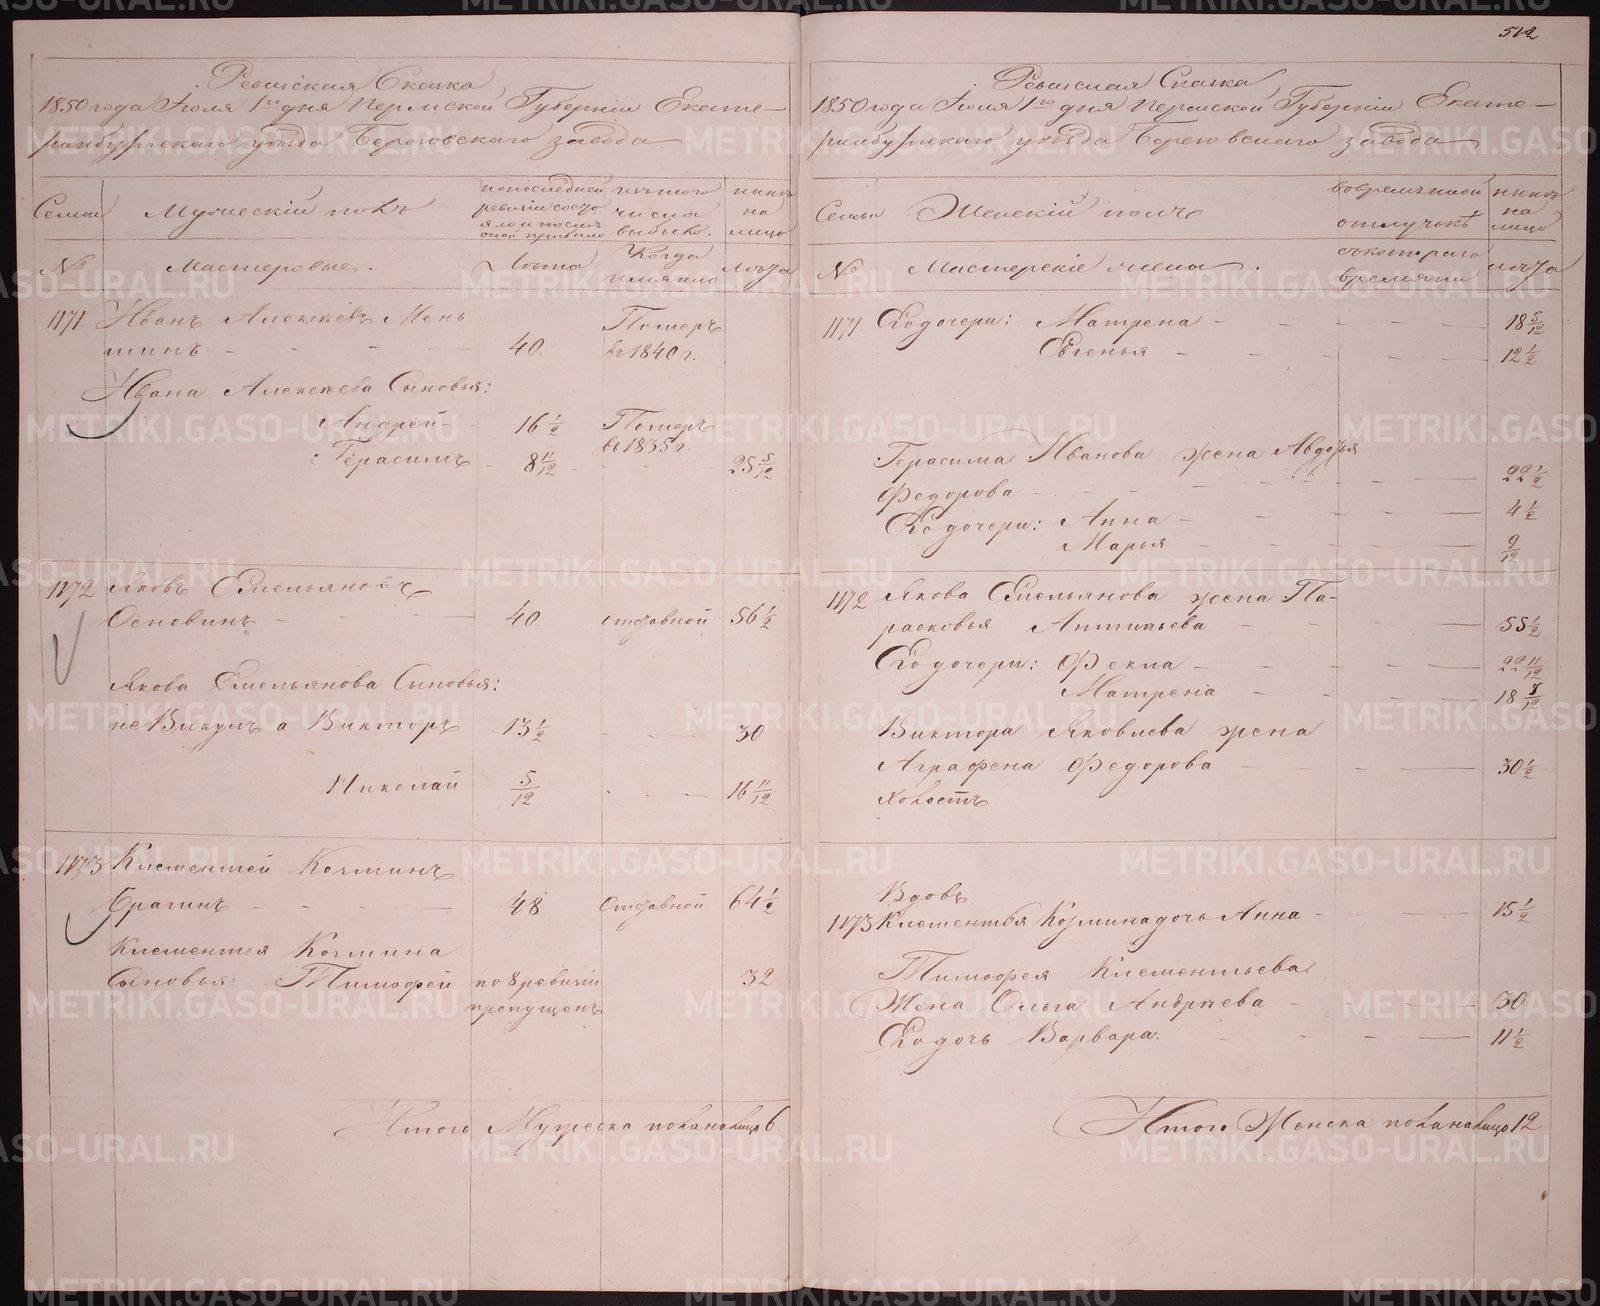 512
Ревизская Сказка
1850 года Іюля 1го дня Пермской Губерніи Екате-
ринбургскаго уѣзда Березовскаго завода
Семьи
Мужескій полъ
по последней
ревизіи состо
яло и послѣ
оной прибыло
изъ того
числа
выбыло.
нынѣ
на
лицо
№
Мастеровые.
Лѣта
Когда
имянно
Лѣта
1171 Иванъ Алексѣевъ Мень
шинъ - - - 40. Померъ
въ 1840 г.
Ивана Алексѣева Сыновья:
Андрей - 16 1/2 Померъ
въ 1835 г.
Герасимъ - 8 11/12 - - 25 5/12
1172 Яковъ Емельяновъ
Основинъ - - - 40 отставной 56 1/2
Якова Емельянова Сыновья:
не Викулъ а Викторъ 13 1/2 - - 30
Николай 5/12 - - 16 11/12
1173 Клементей Козминъ
Брагинъ - - - 48 Отставной 64 1/2
Клементья Козмина
Сыновья: Тимофей по 8 ревизіи 32
пропущенъ
Итого Мужеска пола на лицо 6
Ревизская Сказка
1850 года Іюля 1го дня Пермской Губерніи Екате-
ринбургскаго уѣзда Березовскаго завода
Семьи
Женскій полъ
во временной
отлучкѣ
нынѣ
на
лицо
№
Мастерскіе жены.
съ котораго
времяни
лѣта
1171 Его дочери: Матрена - - - 18 5/12
Евгенья - - - 12 1/2
Герасима Иванова жена Авдотья
Федорова - - - 22 1/2
Его дочери: Анна - - - 4 1/2
Марья - - - 9/12
1172 Якова Емельянова жена Па-
расковья Антипьева - - - 55 1/2
Его дочери: Фекла - - - 22 11/12
Матрена - - - 18 7/12
Виктора Яковлева жена
Аграфена Федорова - - - 30 1/2
Холостъ
Вдовъ.
1173 Клементья Козмина дочь Анна - - 15 1/2
Тимофея Клементьева
Жена Ольга Андреева - - - 30
Его дочь Варвара. - - - 11 1/2
Итого Женска пола на лицо 12
METRIKI.GASO-URAL.RU